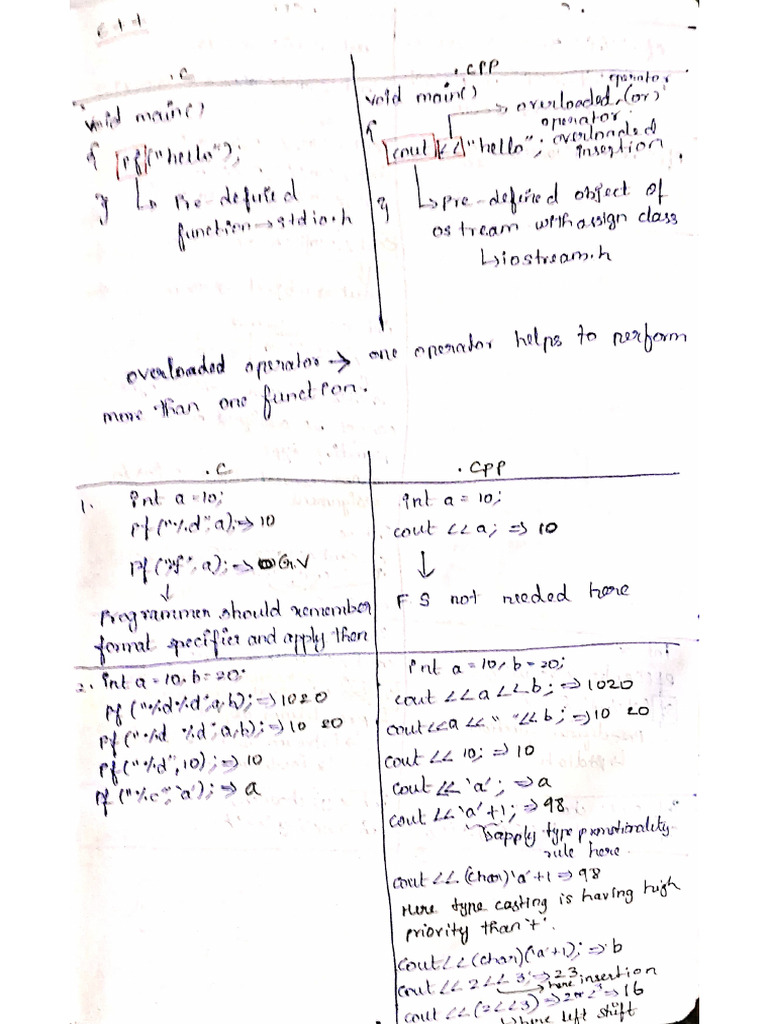 C++
.C
void main()
{ pf("hello");
}
↳ Pre-defined
function→stdio.h
.CPP
void main()
{
cout << "hello";
}
→ overloaded operator (or)
operator
overloaded
insertion
↳ pre-defined object of
ostream withassign class
↳iostream.h
overloaded operator → one operator helps to perform
more than one function.
.C
1. int a=10;
pf("%d",a);⇒10
pf("%f",a);⇒ G.V
↓
Programmer should remember
format specifier and apply then
.CPP
int a=10;
cout <<a; ⇒ 10
↓
F S not needed here
2. int a=10, b=20;
pf("%d%d",a,b);⇒1020
pf("%d %d",a,b);⇒10 20
pf("%d",10);⇒10
pf("%c",'a');⇒ a
int a=10, b=20;
cout <<a<<b; ⇒1020
cout<<a<<" "<<b; ⇒10 20
cout << 10; ⇒ 10
cout << 'a'; ⇒a
cout << 'a'+1; ⇒98
↳apply type promotionality
rule here.
cout <<(char)'a'+1⇒98
Here type casting is having high
priority than '+'.
cout <<(char)('a'+1);⇒b
cout << 2<< 3;⇒23
→here insertion
cout <<(2<<3)⇒ ⇒16
↳here left shift